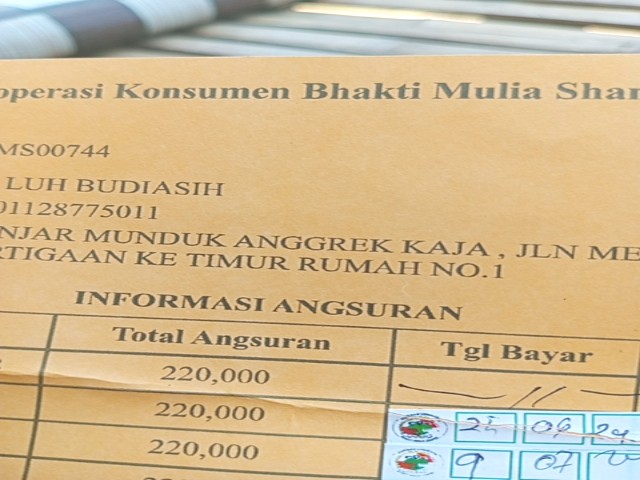 operasi Konsumen Bhakti Mulia Shar
MS00744
LUH BUDIASIH
01128775011
NJAR MUNDUK ANGGREK KAJA , JLN ME
RTIGAAN KE TIMUR RUMAH NO.1
INFORMASI ANGSURAN
Total Angsuran Tgl Bayar
220,000
220,000 24 06 24
220,000 9 07